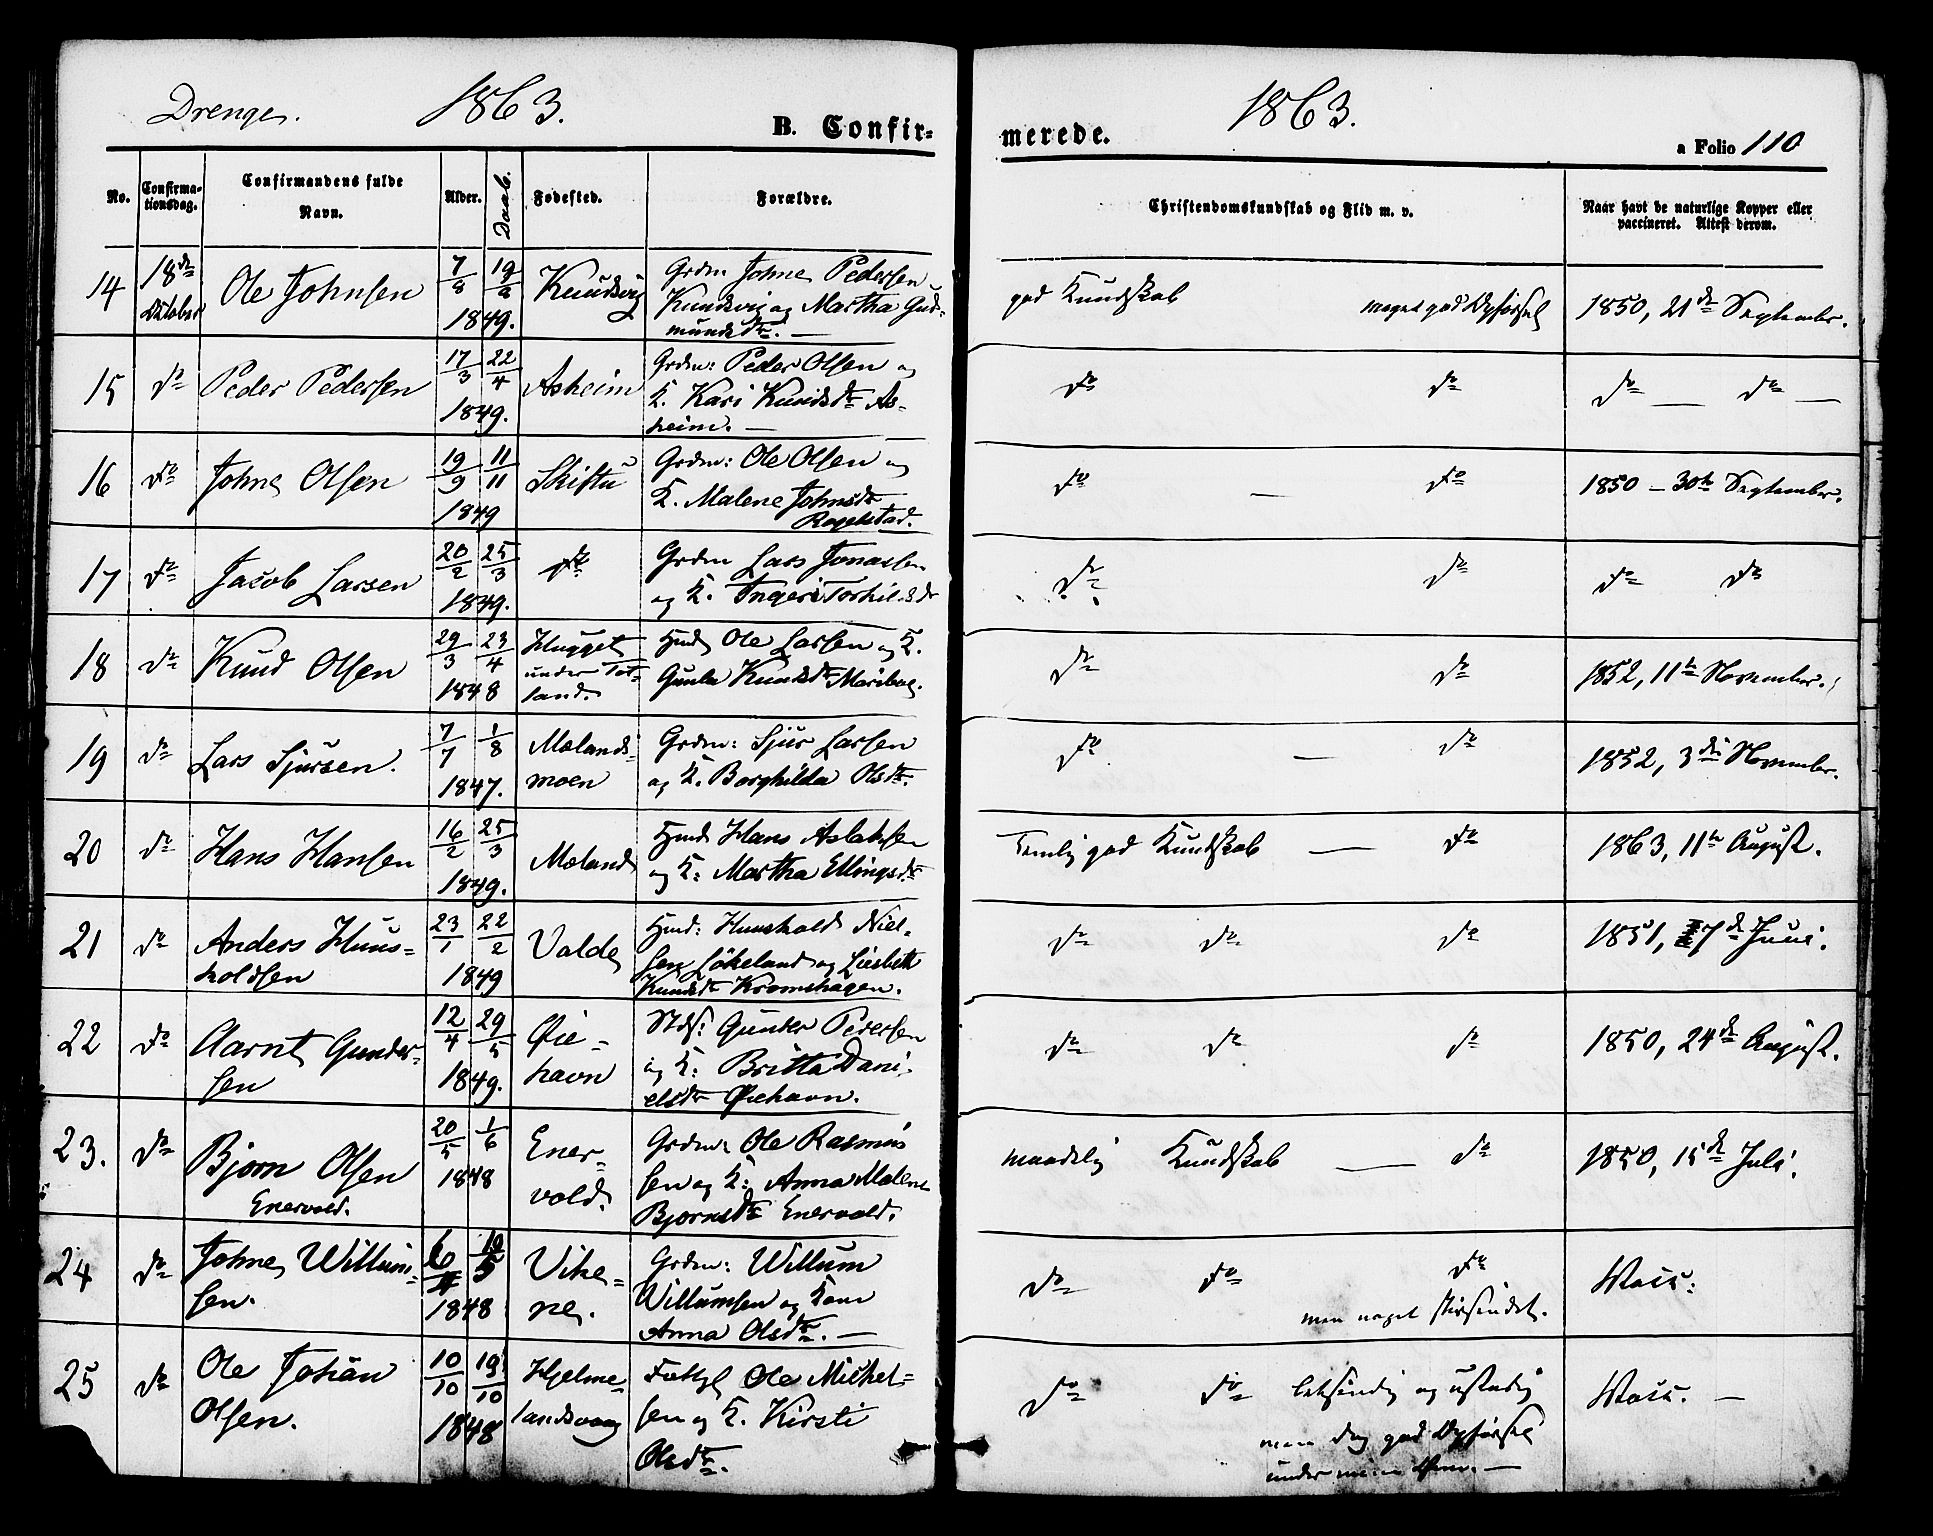 Drenge. 1863. B. Confir= merede. 1863. a Folio 110
No. Confirma-tionsdag. Confirmandens fulde Navn. Alder. Daab. Fødested. Forældre. Christendomskundskab og Flid m. v. Naar havt de naturlige Kopper eller vaccineret. Attest derom.
14 18de Oktober Ole Johnsen 7/8 19/9 1849. Knudsvig Grdm Johne Pedersen
Knudsvig og Martha Gud=
mundsdtr. — god Kundskab meget god Opførsel 1850, 21de September.
15 do Peder Pedersen 17/3 22/4 1849. Asheim Grdm: Peder Olsen og
K. Kari Knudsdtr As-
heim. — do do do — do —
16 do Johne Olsen 19/9 11/11 1849 Skiftu Grdm: Ole Olsen og
K. Malene Johnsdtr
do — do 1850 — 30te September.
17 do Jacob Larsen 20/2 25/3 1849. do Grdm Lars Jonassen
og K. Ingeri Torkilsdr do do do do
18 do Knud Olsen 29/3 23/4 1848 Hugget
under Tot-
land. Hmd Ole Larsen og K.
Gunla Knudsdtr do do 1852, 11te November.
19 do Lars Sjursen. 7/7 1/8 1847. Mælands-
moen Grdm: Sjur Larsen
og K. Borghilda Olsdtr. do — do 1852, 3die November.
20 do Hans Hansen 16/2 25/3 1849. Mæland Hmd Hans Aslaksen
og K: Martha Ellingsdtr Temlig god Kundskab — do 1863, 11te August.
21 do Anders Huus-
holdsen 23/1 22/2 1849 Valde Hmd: Huushold Niel-
sen Løkeland og Lisbeth
Knudsdtr Kromshagen. do do do 1851, 7de Juni.
22 do Aarnt Gunder-
sen 12/4 29/5 1849. Øie-
havn Gunder Pedersen
og K: Britta Dani-
elsdtr Øiehavn. do do do 1850, 24de August.
23. do Bjørn Olsen
Enervold. 20/5 1/6 1848 Ener-
vold. Grdm: Ole Rasmus
sen og K: Anna Malene
Bjørnsdtr Enervold. maadelig Kundskab — do 1850, 15de Juli.
24 do Johne Willum-
sen. 1848 Vike-
ne. Grdm: Willum
Willumsen og Kone
Anna Olsdtr. — do do do
men noget
25 do Ole Johan
Olsen. 10/10 19/10 1848 Hjelme-
landsvaag Ole Mikkel-
sen og K. Kirsti
Olsdtr. do do letsindig og ustadig
men dog god Opførsel
under